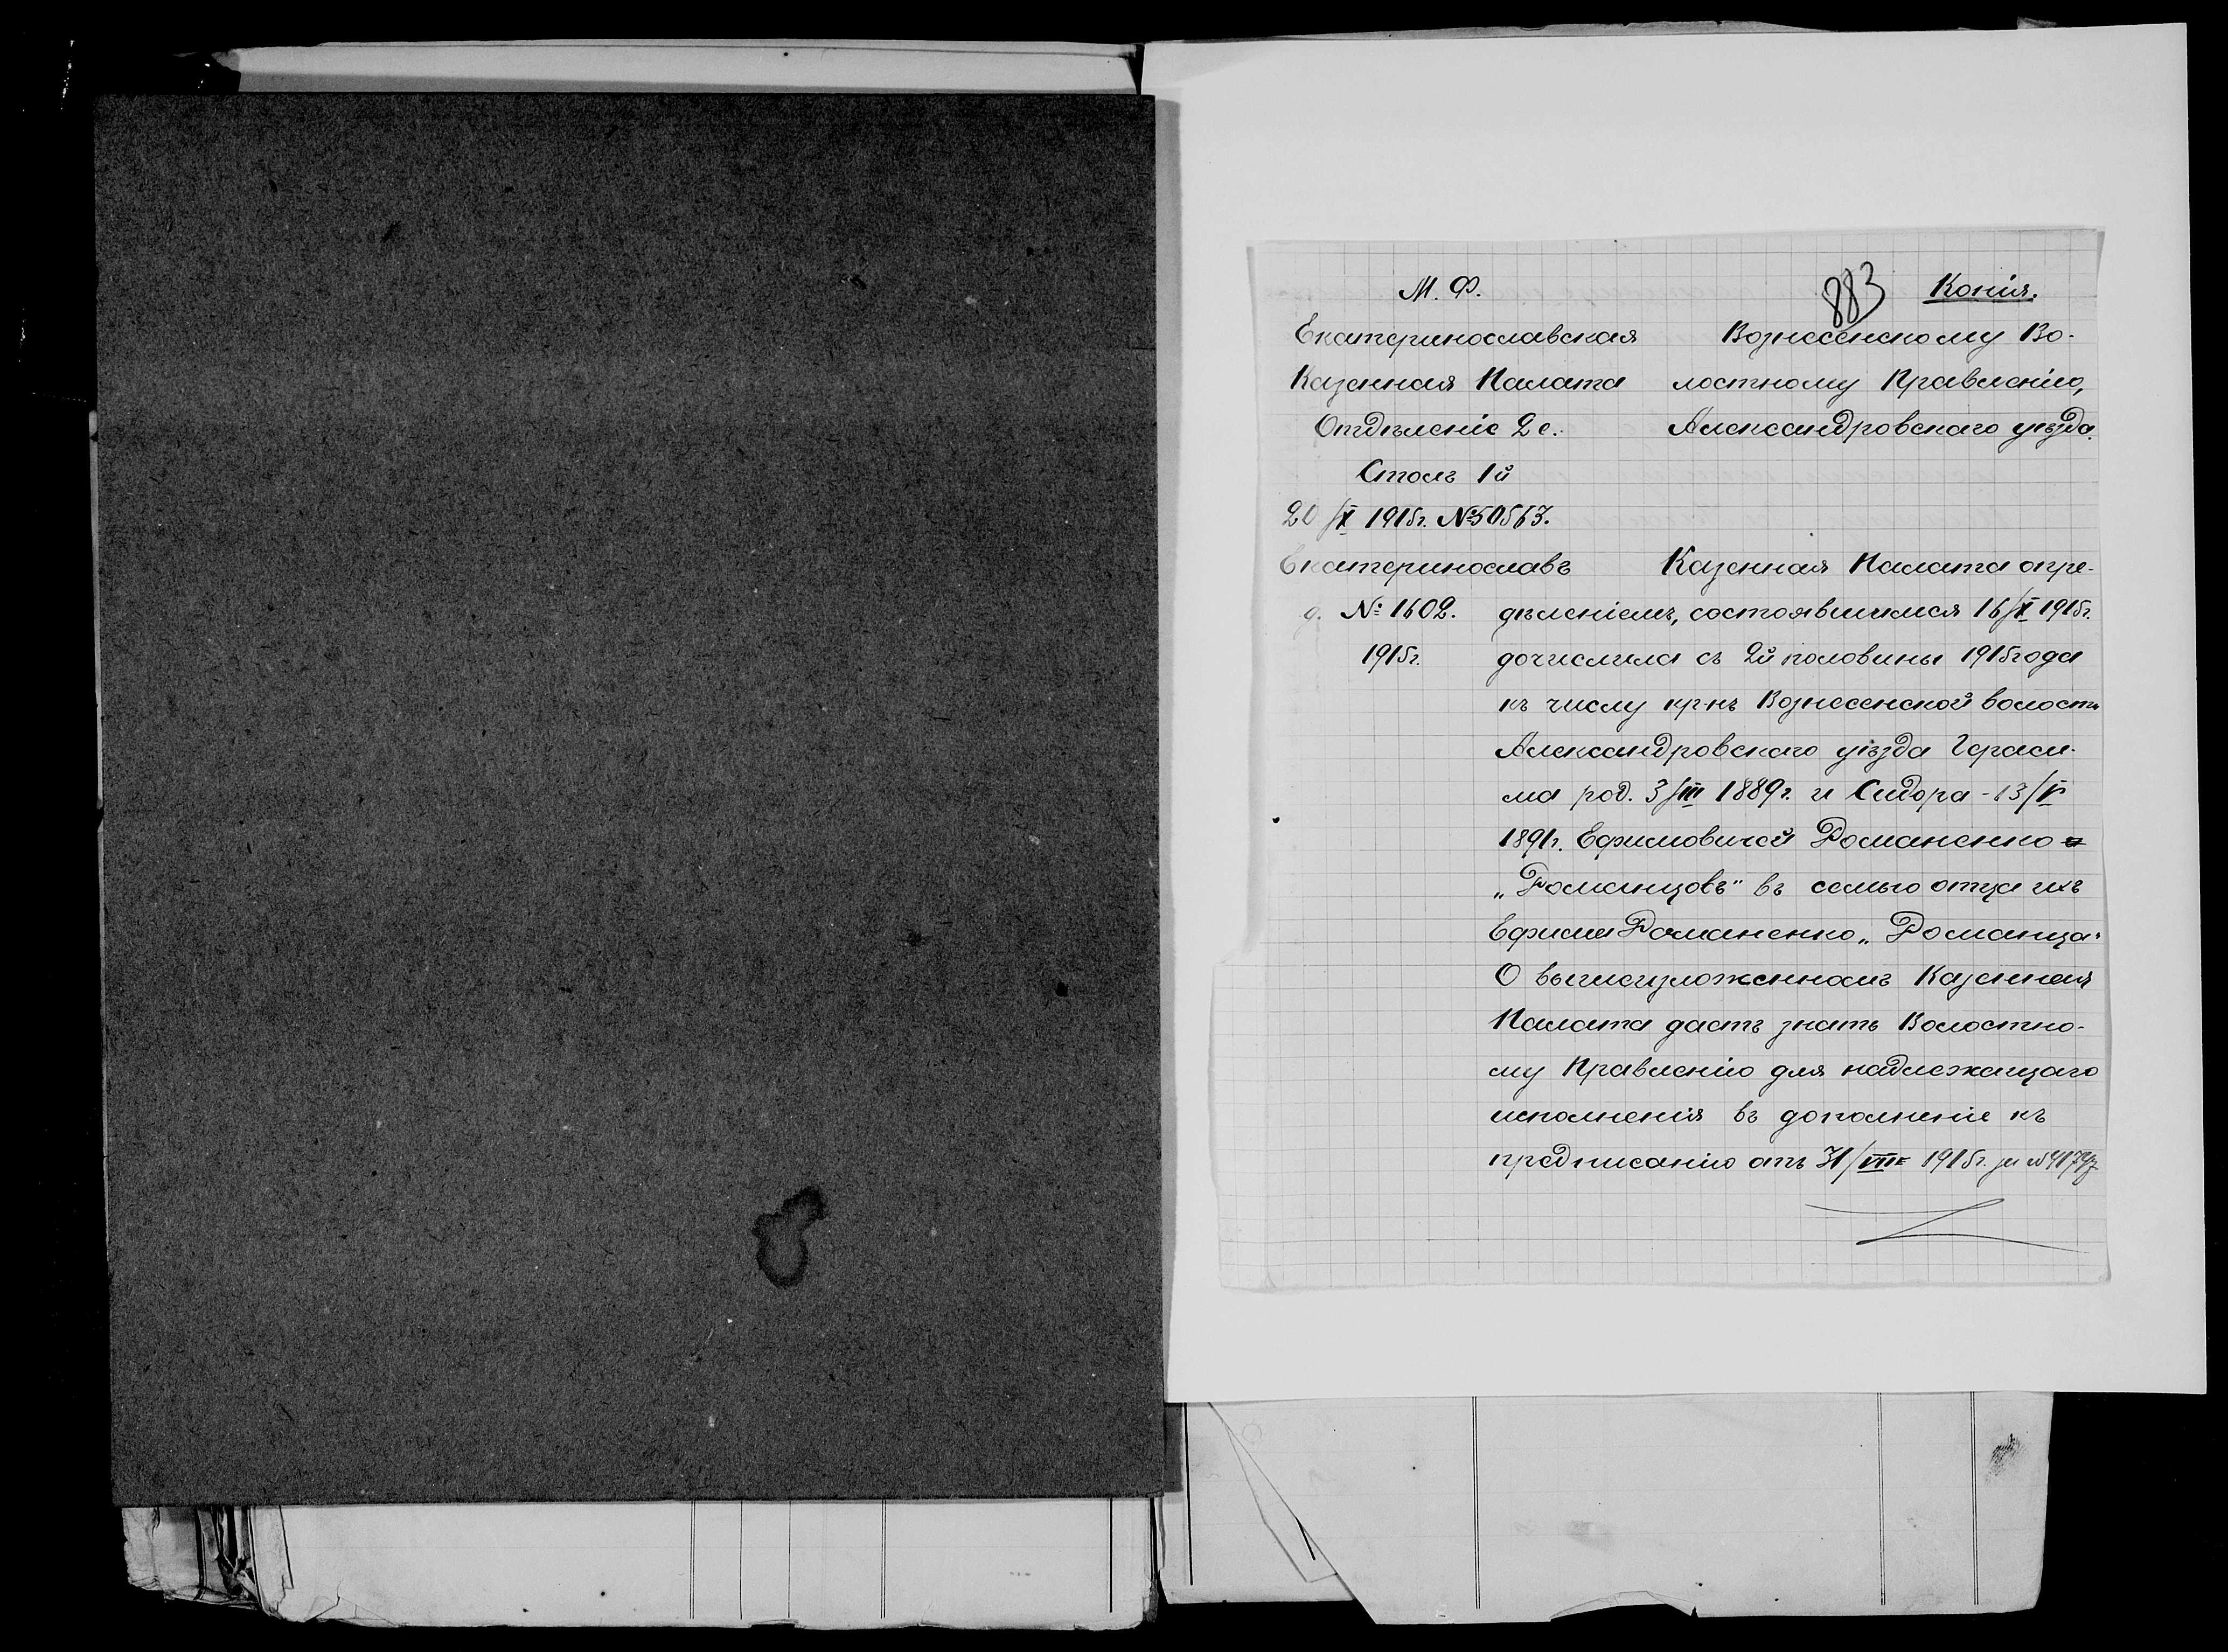 М. Ф.
883 Копія.
Екатеринославская
Казенная Палата
Отдѣленіе 2е.
Столъ 1й
20/X 1915г. №50563.
Екатеринославъ
д. № 1602.
1915г.
Вознесенскому Во-
лостному Правленію,
Александровскаго уѣзда.
Казенная Палата опре-
дѣленіемъ, состоявшимся 16/X 1915г.
дочислила съ 2й половины 1915года
къ числу кр-нъ Вознесенской волости
Александровскаго уѣзда Гераси-
ма род. 3/III 1889г. и Сидора - 13/V
1891г. Ефимовичей Романенко
„Романцовъ" въ семью отца ихъ
Ефима Романенко „Романца"
О вышеизложенномъ Казенная
Палата даетъ знать Волостно-
му Правленію для надлежащаго
исполненія въ дополненіе къ
предписанію отъ 31/VIII 1915г. за №